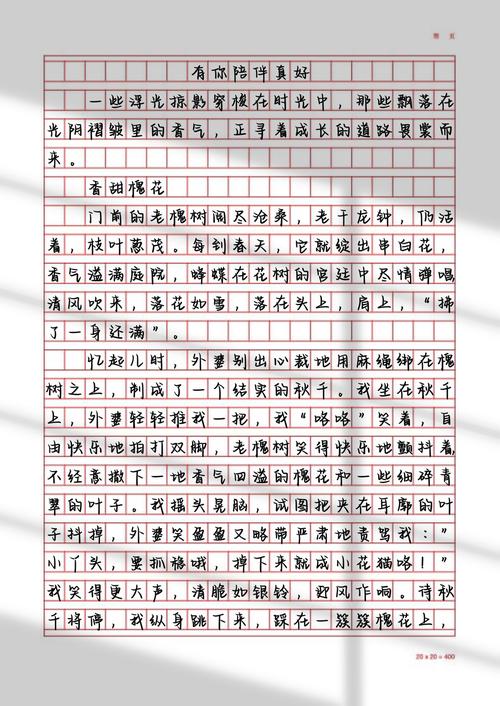 有你陪伴真好
一些浮光掠影穿梭在时光中，那些飘落在
光阴褶皱里的香气，正寻着成长的道路畏裳而
来。
香甜槐花
门前的老槐树阅尽沧桑，老干龙钟，仍活
着，枝叶葱茂。每到春天，它就绽出串白花，
香气溢满庭院，蜂蝶在花树的宫廷中尽情弹唱，
清风吹来，落花如雪，落在头上，肩上，“拂
了一身还满”。
忆起儿时，外婆别出心裁地用麻绳绑在槐
树之上，制成了一个结实的秋千。我坐在秋千
上，外婆轻轻推我一把，我“咯咯”笑着，自
由快乐地拍打双脚，老槐树笑得快乐地颤抖着，
不经意撒下一地香气四溢的槐花和一些细碎青
翠的叶子。我摇头晃脑，试图把夹在耳廓的叶
子抖掉，外婆笑盈盈又略带严肃地责骂我：“
小丫头，要抓稳哦，掉下来就成小花猫咯！”
我笑得更大声，清脆如银铃，迎风作响。待秋
千将停，我纵身跳下来，踩在一簇簇槐花上，
20 x 20 = 400